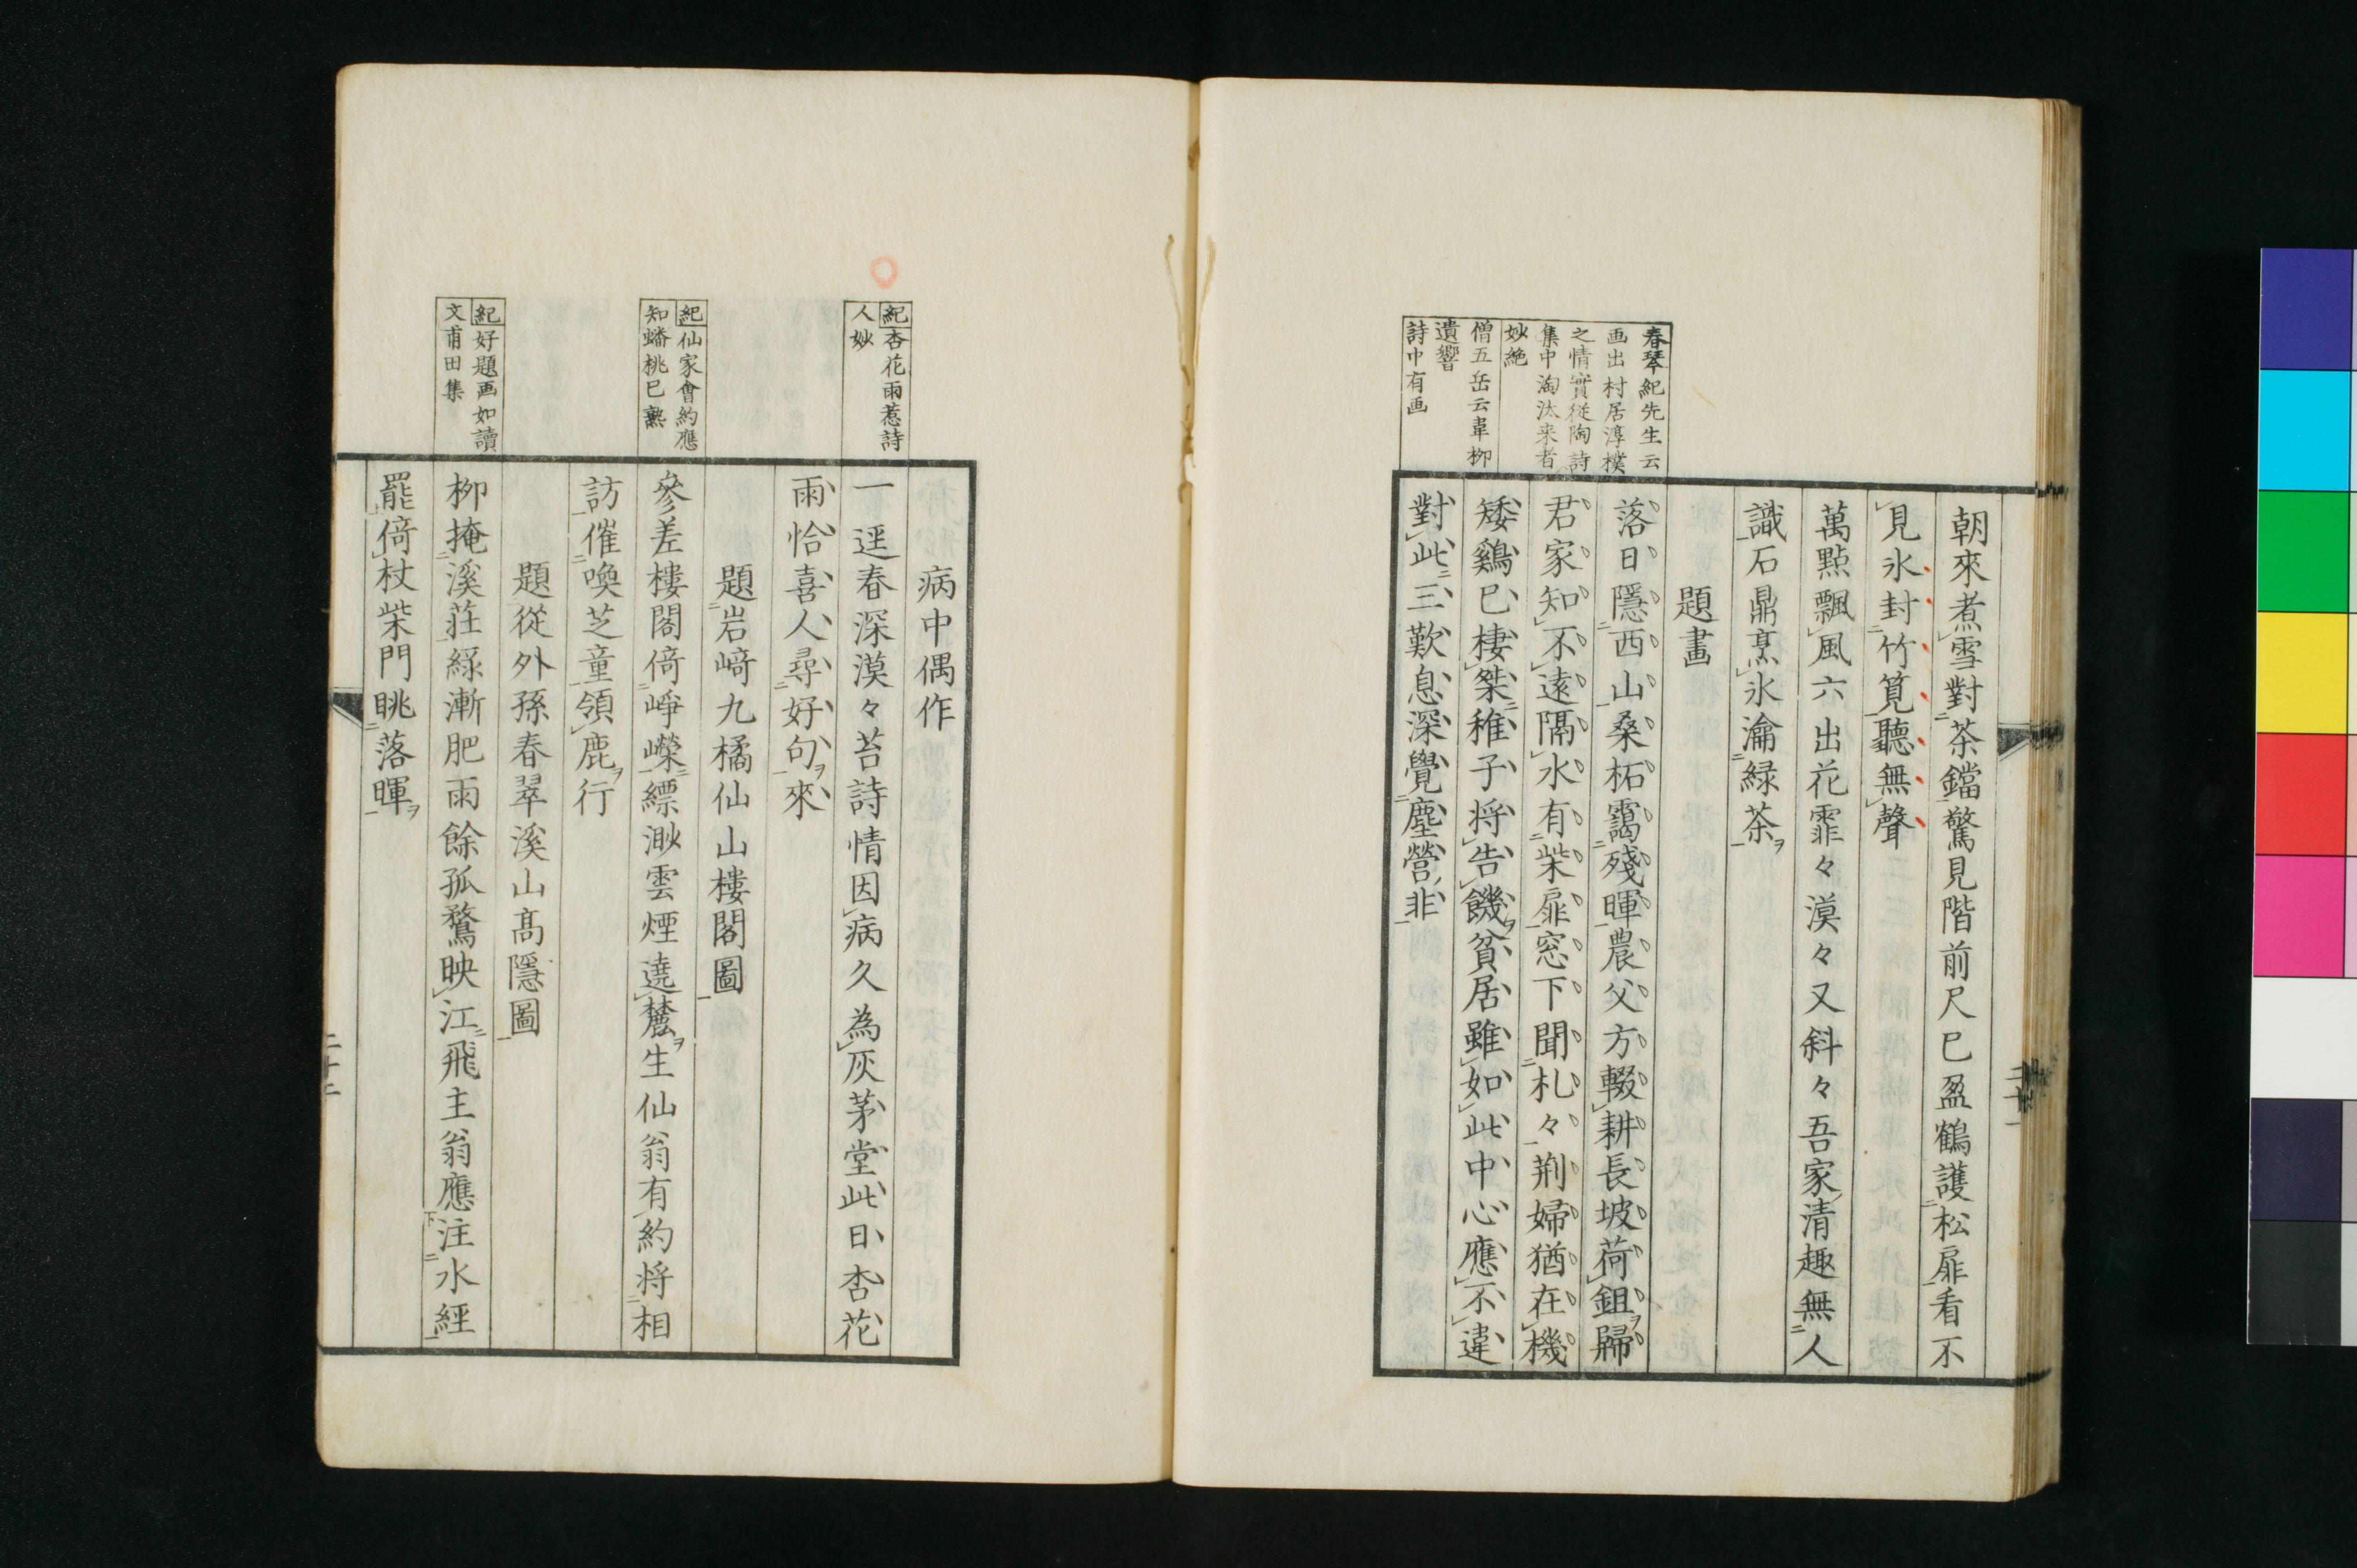 春琴紀先生云
画出村居淳樸
之情實従陶詩
集中淘汰来者
妙絶
僧五岳云韋柳
遺響
詩中有画
朝來煮雪對茶鐺驚見階前尺已盈鶴護松扉看不
見氷封竹筧聽無聲
萬點飄風六出花霏々漠々又斜々吾家清趣無人
識石鼎烹氷瀹緑茶
題畫
落日隱西山桑柘靄殘暉農父方輟耕長坡荷鉏歸
君家知不遠隔水有柴扉窓下聞札々荆婦猶在機
矮鷄已棲桀稚子将告饑貧居雖如此中心應不違
對此三歎息深覺塵營非
二十一
紀杏花雨惹詩
人妙
紀仙家會約應
知蟠桃已熟
紀好題画如讀
文甫田集
病中偶作
一逕春深漠々苔詩情因病久為灰茅堂此日杏花
雨恰喜人尋好句來
題岩﨑九橘仙山樓閣圖
參差樓閣倚崢嶸縹渺雲煙遶麓生仙翁有約将相
訪催喚芝童領鹿行
題從外孫春翠溪山髙隱圖
柳掩溪莊緑漸肥雨餘孤鶩映江飛主翁應注水經
罷倚杖柴門眺落暉
二十二